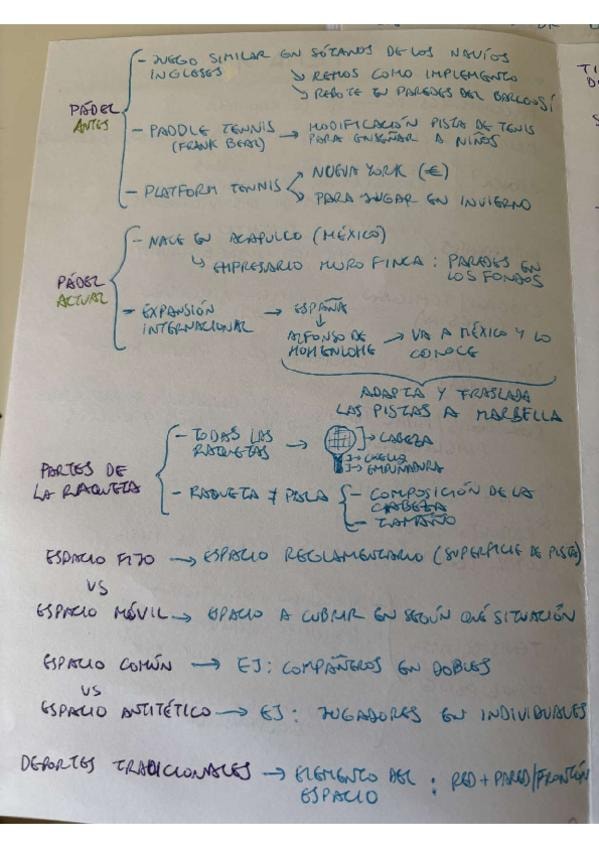 - JUEGO SIMILAR EN SÓTANOS DE LOS NAVÍOS
INGLESES
↳ REMOS COMO IMPLEMENTO
↳ REBOTE EN PAREDES DEL BARCO SÍ
PÁDEL
ANTES
- PADDLE TENNIS → MODIFICACIÓN PISTA DE TENIS
(FRANK BEAL) PARA ENSEÑAR A NIÑOS
- PLATFORM TENNIS
NUEVA YORK (€)
PARA JUGAR EN INVIERNO
PÁDEL
ACTUAL
- NACE EN ACAPULCO (MÉXICO)
↳ EMPRESARIO MURO FINCA : PAREDES EN
LOS FONDOS
- EXPANSIÓN → ESPAÑA
INTERNACIONAL
↓
ALFONSO DE → VA A MÉXICO Y LO
HOHENLOHE CONOCE
ADAPTA Y TRASLADA
LAS PISTAS A MARBELLA
PARTES DE
LA RAQUETA
- TODAS LAS →
RAQUETAS
→ CABEZA
→ CUELLO
→ EMPUÑADURA
- RAQUETA ≠ PALA
- COMPOSICIÓN DE LA
CABEZA
- TAMAÑO
ESPACIO FIJO → ESPACIO REGLAMENTARIO (SUPERFICIE DE PISTA)
VS
ESPACIO MÓVIL → ESPACIO A CUBRIR EN SEGÚN QUÉ SITUACIÓN
ESPACIO COMÚN → EJ: COMPAÑEROS EN DOBLES
VS
ESPACIO ANTITÉTICO → EJ: JUGADORES EN INDIVIDUALES
DEPORTES TRADICIONALES → ELEMENTO DEL : RED + PARED/FRONTÓN
ESPACIO